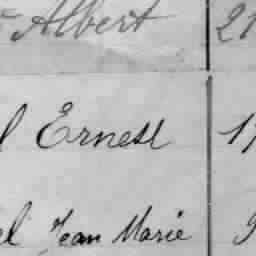 Albert 21
l Ernest 17
el Jean Marie